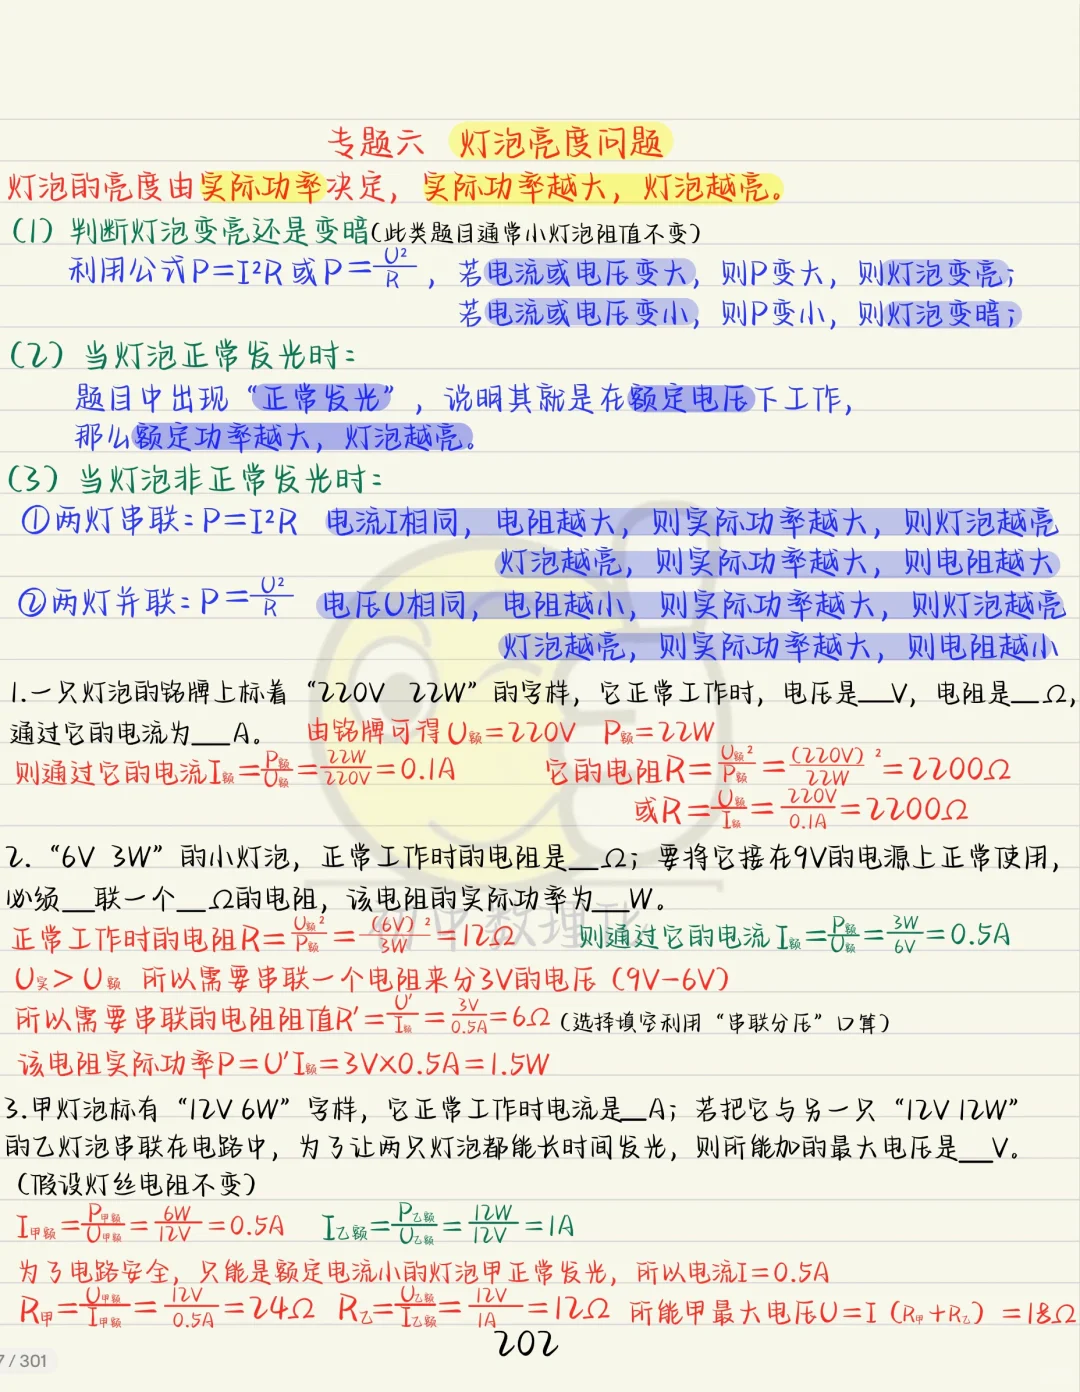 专题六 灯泡亮度问题
灯泡的亮度由实际功率决定，实际功率越大，灯泡越亮。
(1) 判断灯泡变亮还是变暗(此类题目通常小灯泡阻值不变)
利用公式P=I²R或P=U²/R，若电流或电压变大，则P变大，则灯泡变亮；
若电流或电压变小，则P变小，则灯泡变暗；
(2) 当灯泡正常发光时：
题目中出现“正常发光”，说明其就是在额定电压下工作，
那么额定功率越大，灯泡越亮。
(3) 当灯泡非正常发光时：
①两灯串联：P=I²R 电流I相同，电阻越大，则实际功率越大，则灯泡越亮
灯泡越亮，则实际功率越大，则电阻越大
②两灯并联：P=U²/R 电压U相同，电阻越小，则实际功率越大，则灯泡越亮
灯泡越亮，则实际功率越大，则电阻越小
1.一只灯泡的铭牌上标着“220V 22W”的字样，它正常工作时，电压是__V，电阻是__Ω，
通过它的电流为__A。 由铭牌可得U额=220V P额=22W
则通过它的电流I额=P额/U额=22W/220V=0.1A 它的电阻R=U额²/P额=(220V)²/22W=2200Ω
或R=U额/I额=220V/0.1A=2200Ω
2.“6V 3W”的小灯泡，正常工作时的电阻是__Ω；要将它接在9V的电源上正常使用，
必须__联一个__Ω的电阻，该电阻的实际功率为__W。
初中数理化
正常工作时的电阻R=U额²/P额=(6V)²/3W=12Ω 则通过它的电流I额=P额/U额=3W/6V=0.5A
U实>U额 所以需要串联一个电阻来分3V的电压（9V-6V）
所以需要串联的电阻阻值R'=U'/I额=3V/0.5A=6Ω（选择填空利用“串联分压”口算）
该电阻实际功率P=U'I额=3V×0.5A=1.5W
3.甲灯泡标有“12V 6W”字样，它正常工作时电流是__A；若把它与另一只“12V 12W”
的乙灯泡串联在电路中，为了让两只灯泡都能长时间发光，则所能加的最大电压是__V。
（假设灯丝电阻不变）
I甲额=P甲额/U甲额=6W/12V=0.5A I乙额=P乙额/U乙额=12W/12V=1A
为了电路安全，只能是额定电流小的灯泡甲正常发光，所以电流I=0.5A
R甲=U甲额/I甲额=12V/0.5A=24Ω R乙=U乙额/I乙额=12V/1A=12Ω 所能甲最大电压U=I（R甲+R乙）=18Ω
202
7/301